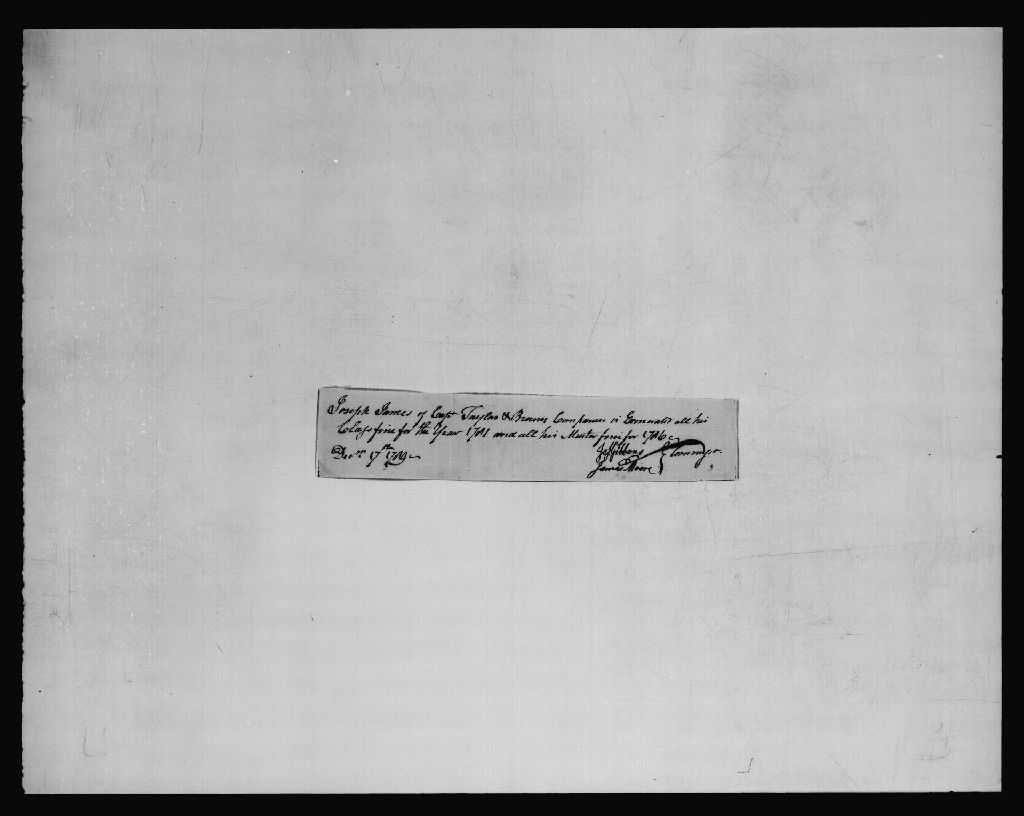 Joseph James of Capt Taylor & Browns Companies is Exonerated all his
Class fine for the Year 1781 and all his Muster fine for 1786
Decr 17th 1789
James Moore Commrs